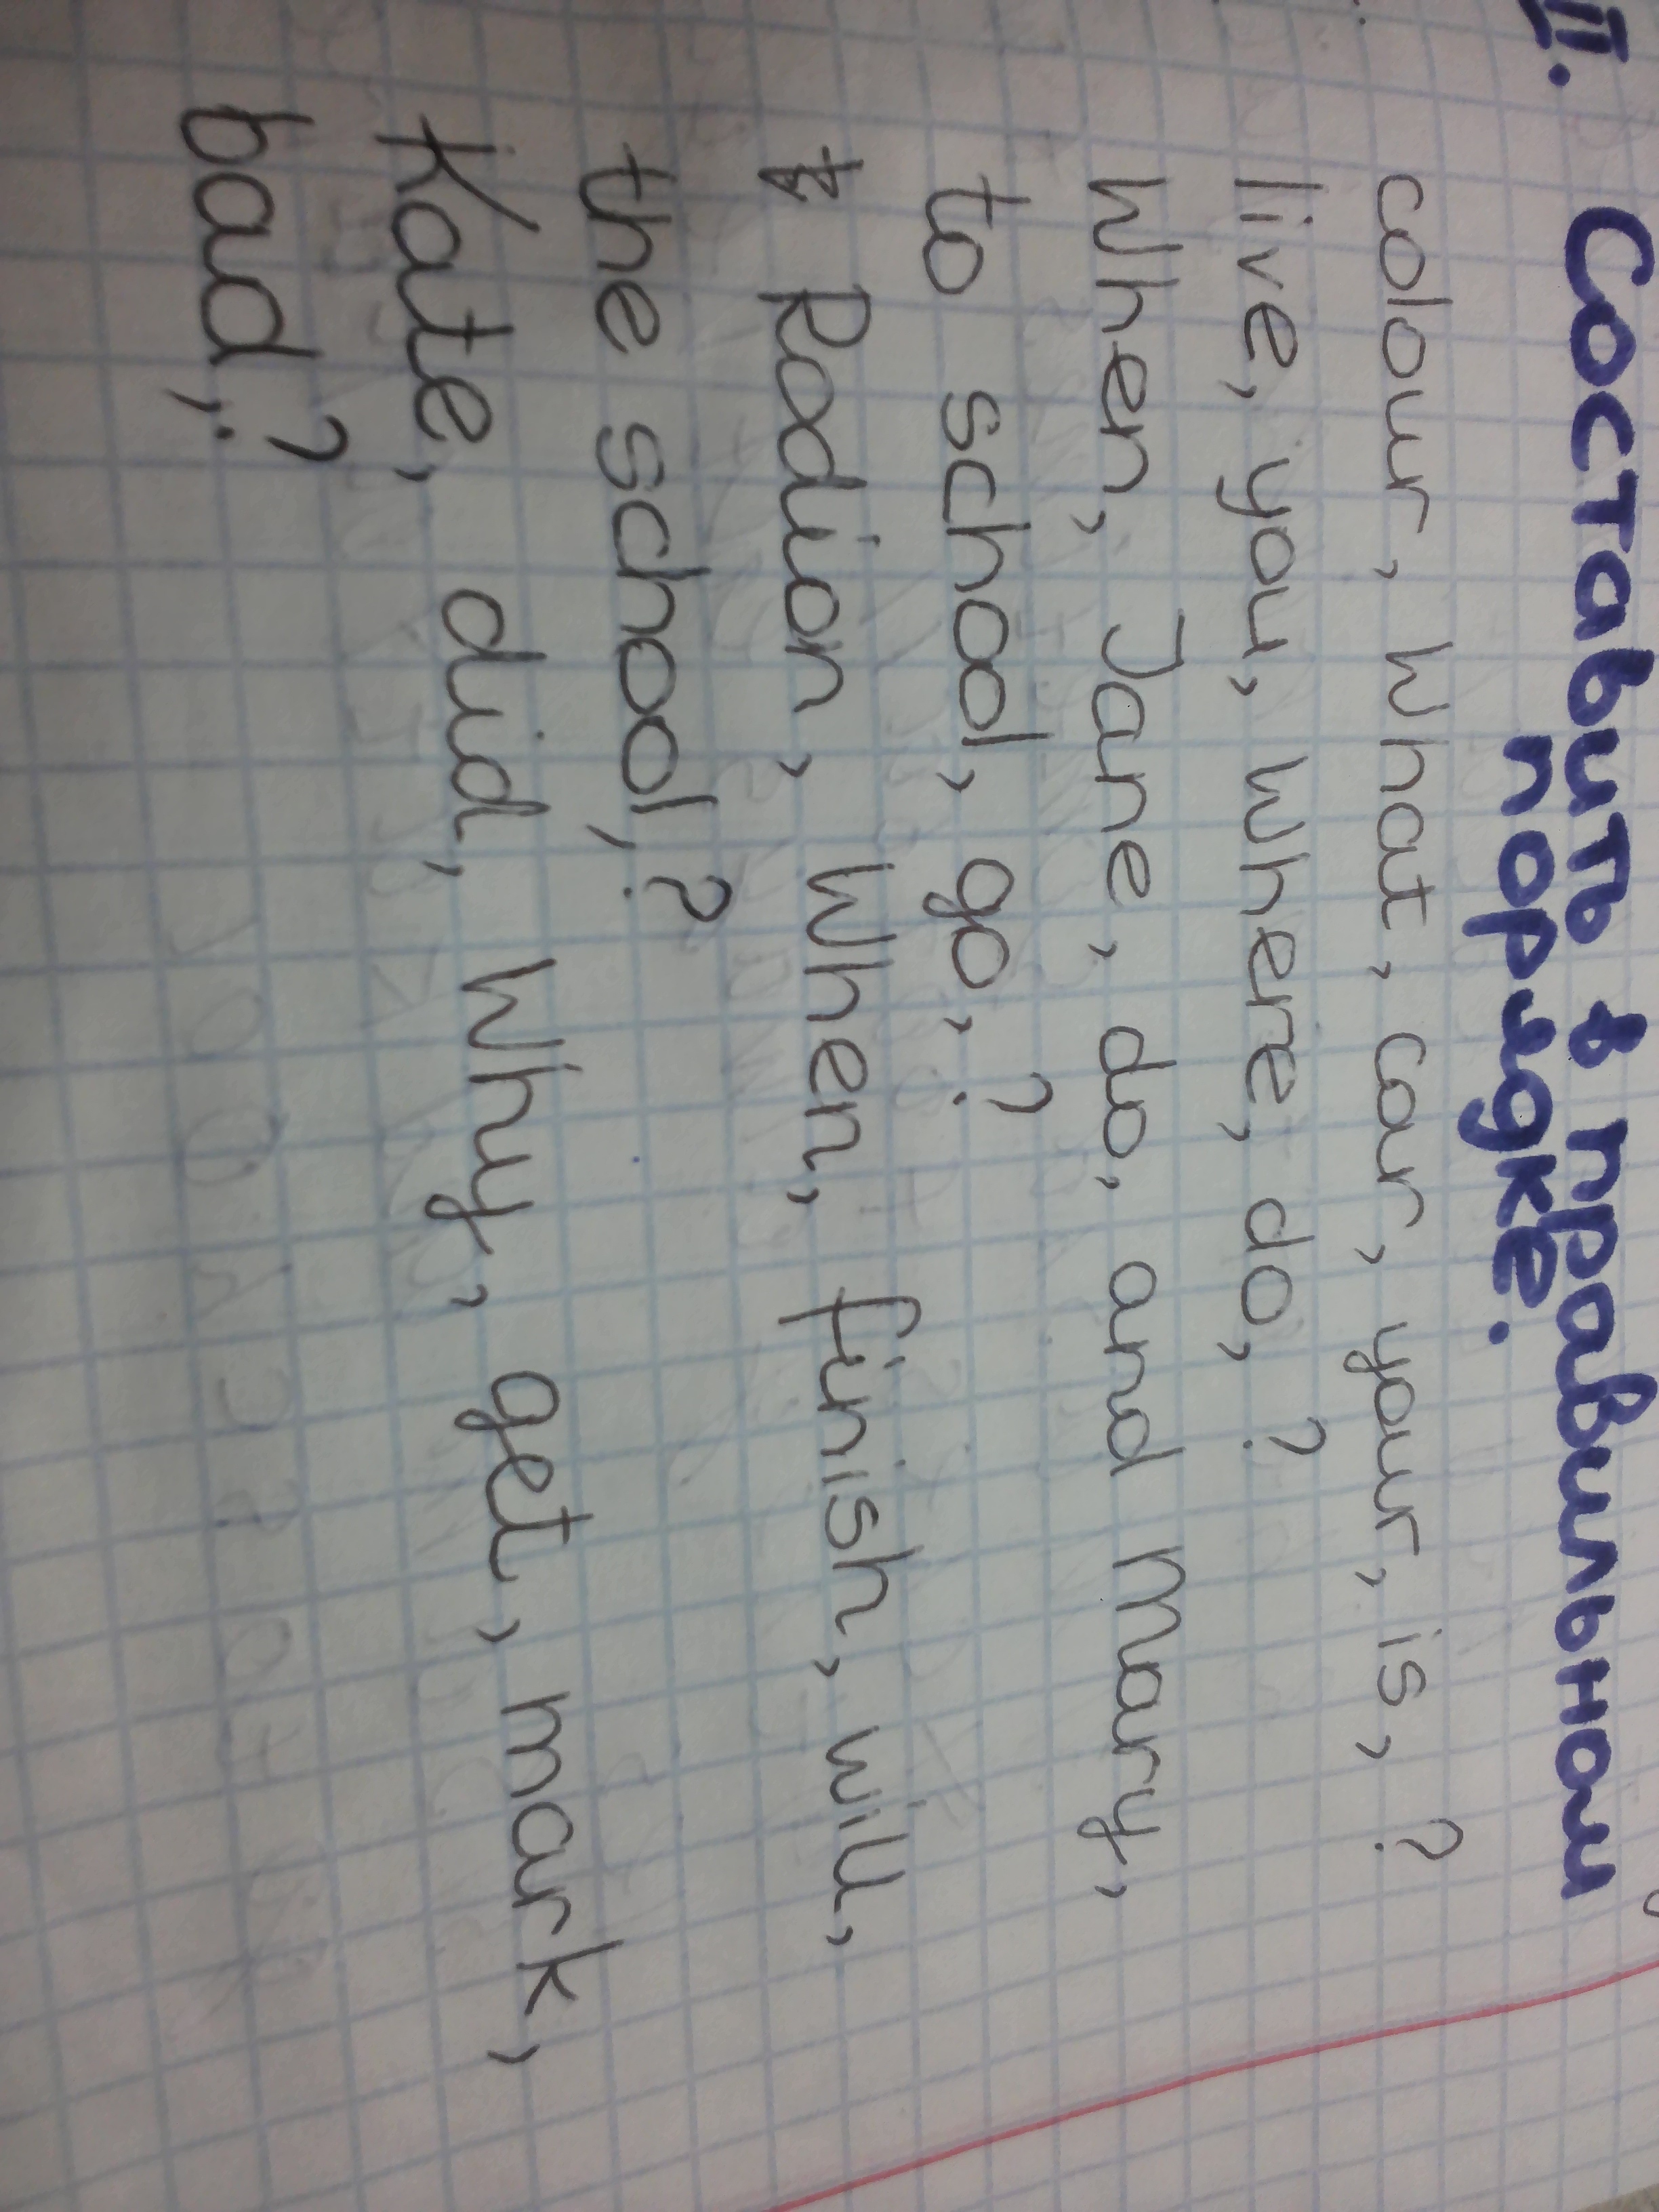 II. Составить в правильном
порядке.
colour, What, car, your, is, ?
live, you, Where, do, ?
When, Jane, do, and Mary,
to school, go, ?
Rodion, When, finish, will,
the school, ?
Kate, did, Why, get, mark,
bad, ?